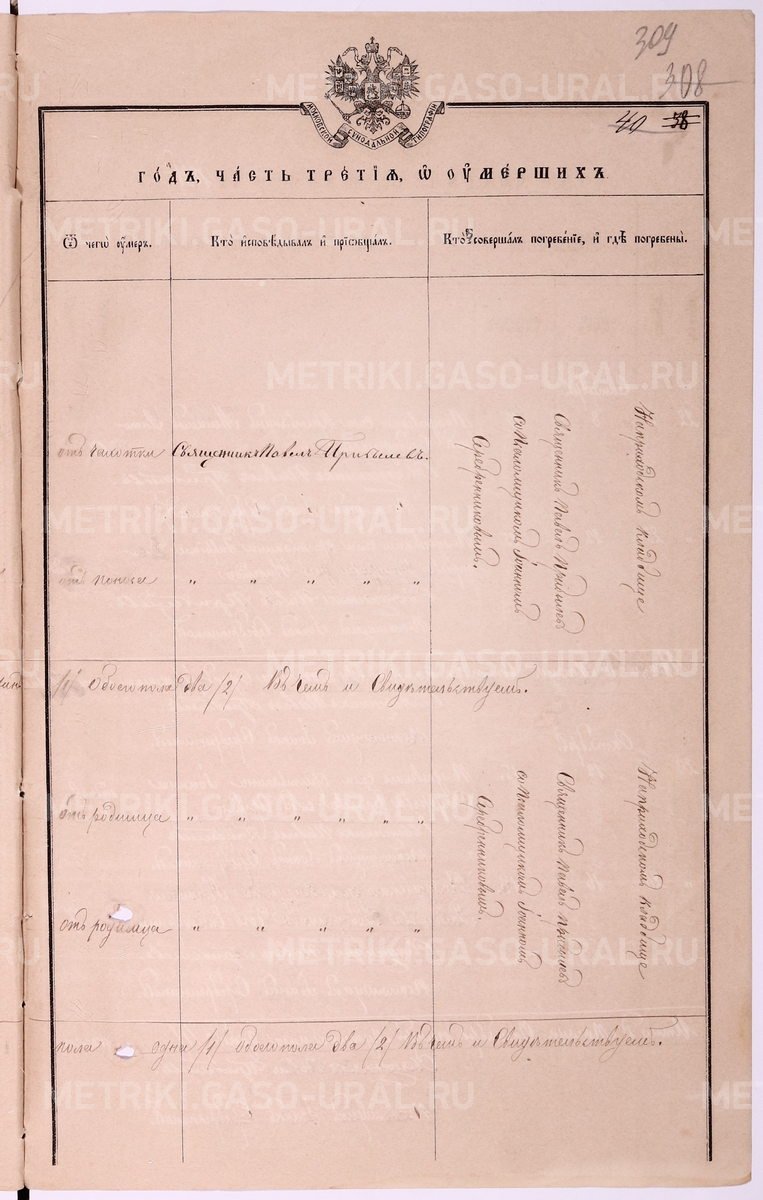 309
308
МОСКОВСКОЙ СѴНОДАЛЬНОЙ ТИПОГРАФІИ
40 38
ГО́ДЪ, ЧА́СТЬ ТРЕ́ТІЯ, Ѡ҆ ОУ҆МЕ́РШИХЪ
Ѿ чегѡ̀ оу҆́меръ.
Кто̀ и҆сповѣ́дывалъ и҆ прїѡбща́лъ.
Кто̀ соверша́лъ погребе́нїе, и҆ гдѣ̀ погребены̀.
отъ чахотки
Священникъ Павелъ Прибылевъ.
Священникъ Павелъ Прибылевъ
со Псаломщикомъ Іоанномъ
Серебренниковымъ.
На приходскомъ кладбище
отъ поноса " " " " "
/1/ Обоего пола два /2/ Въ чемъ и Свидѣтельствуемъ.
отъ родимца " " " " " "
Священникъ Павелъ Прибылевъ
со Псаломщикомъ Іоанномъ
Серебренниковымъ.
На приходскомъ кладбище
отъ родимца " " " " "
пола одна /1/ обоего пола два /2/ Въ чемъ и Свидѣтельствуемъ.
METRIKI.GASO-URAL.RU